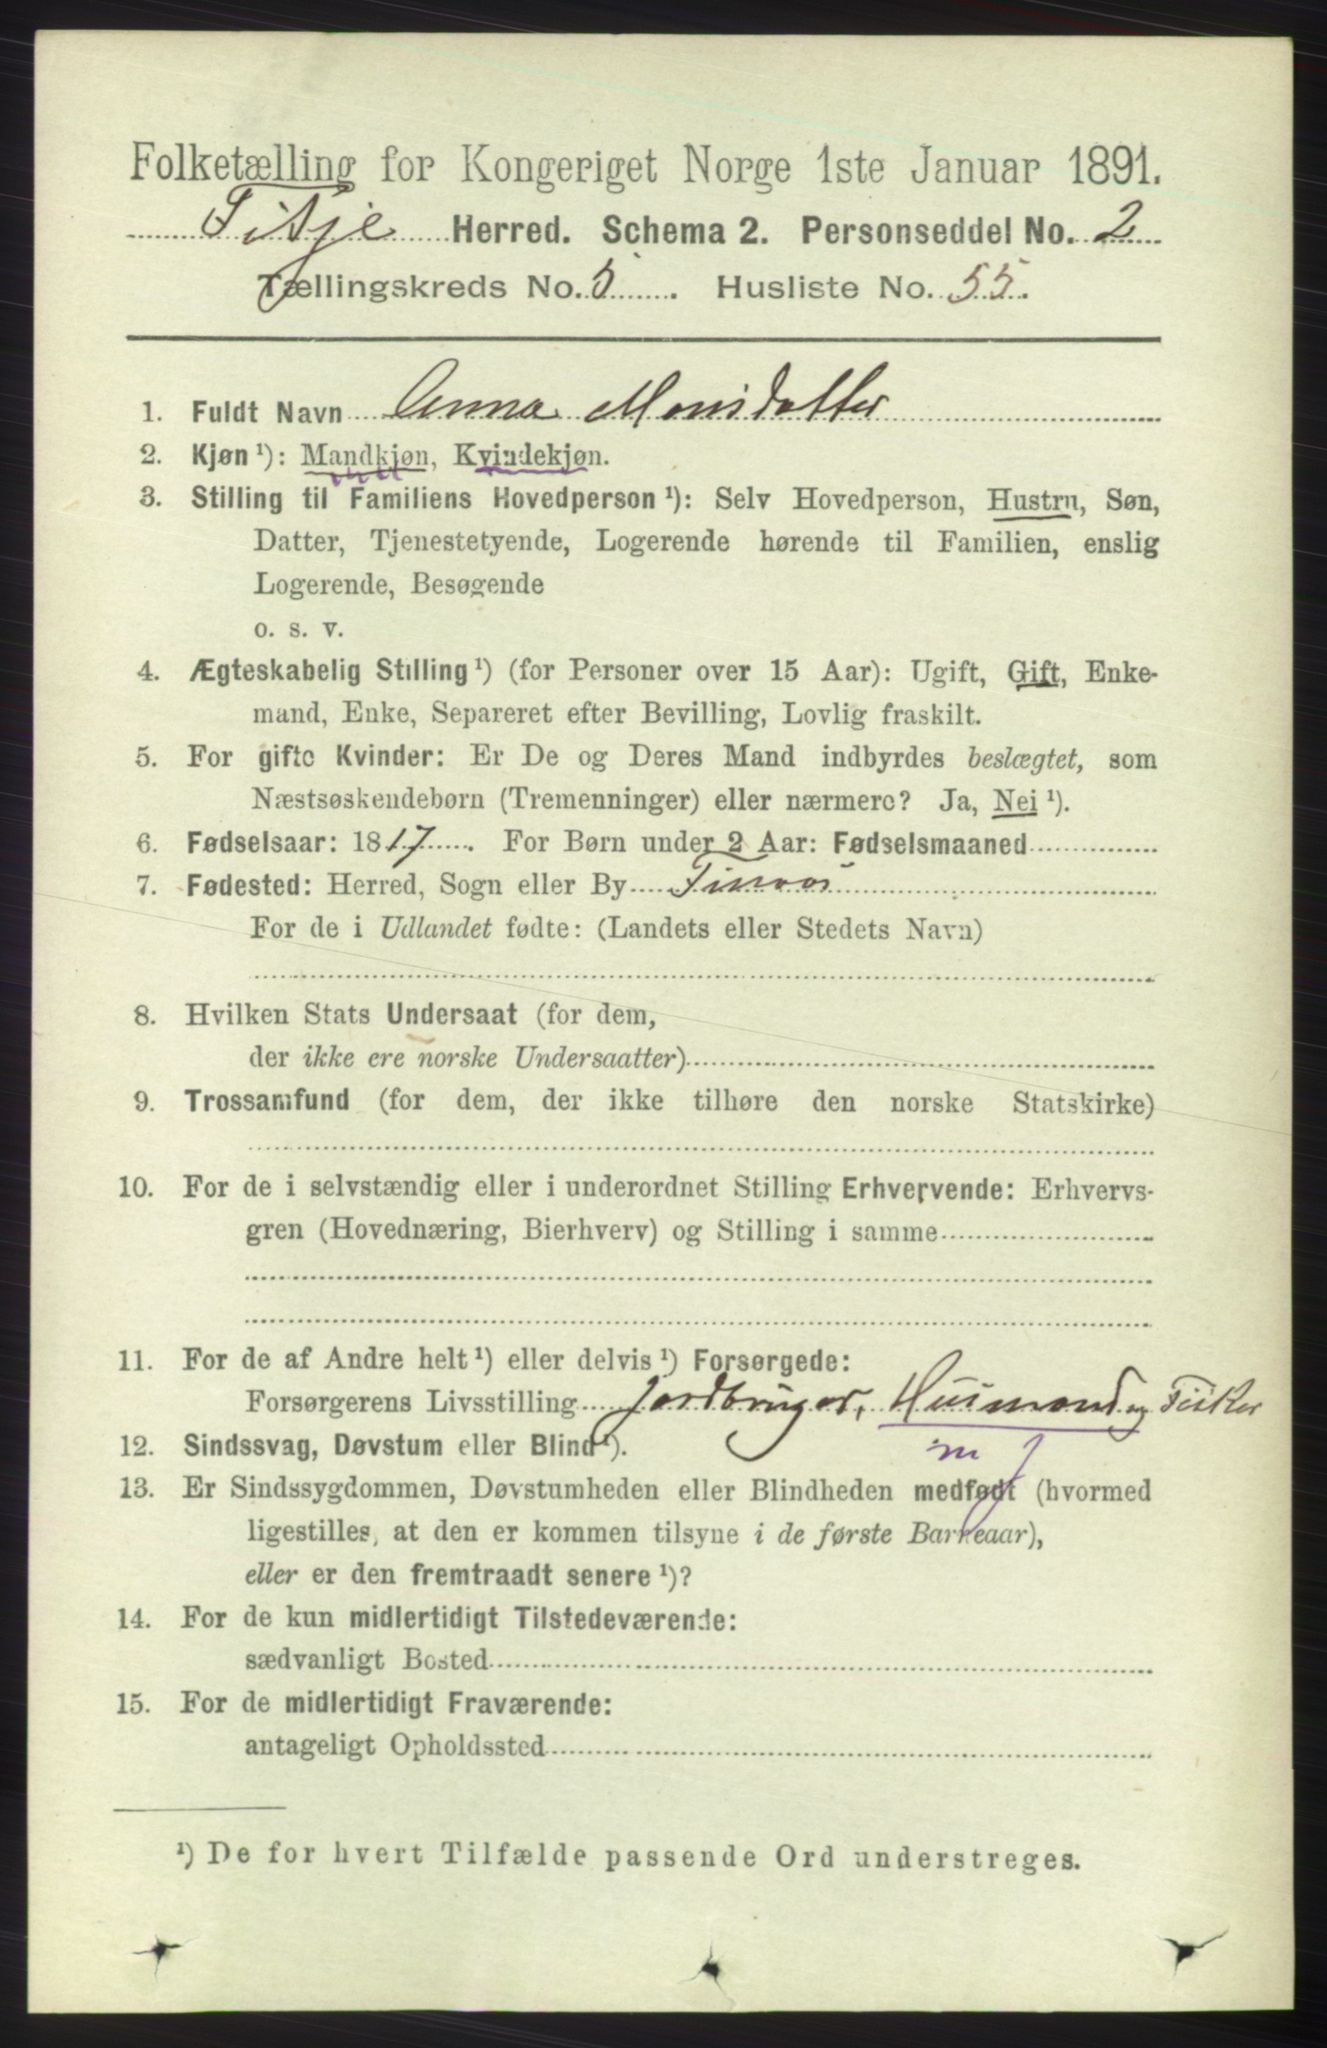 Folketælling for Kongeriget Norge 1ste Januar 1891.
Fitje Herred. Schema 2. Personseddel No. 2
Tællingskreds No. 5. Husliste No. 55.
1. Fuldt Navn Anna Monsdatter
2. Kjøn ¹): Mandkjøn, Kvindekjøn.
3. Stilling til Familiens Hovedperson ¹): Selv Hovedperson, Hustru, Søn,
Datter, Tjenestetyende, Logerende hørende til Familien, enslig
Logerende, Besøgende
o. s. v.
4. Ægteskabelig Stilling ¹) (for Personer over 15 Aar): Ugift, Gift, Enke-
mand, Enke, Separeret efter Bevilling, Lovlig fraskilt.
5. For gifte Kvinder: Er De og Deres Mand indbyrdes beslægtet, som
Næstsøskendebørn (Tremenninger) eller nærmere? Ja, Nei ¹).
6. Fødselsaar: 1817. For Børn under 2 Aar: Fødselsmaaned
7. Fødested: Herred, Sogn eller By Finaas
For de i Udlandet fødte: (Landets eller Stedets Navn)
8. Hvilken Stats Undersaat (for dem,
der ikke ere norske Undersaatter)
9. Trossamfund (for dem, der ikke tilhøre den norske Statskirke)
10. For de i selvstændig eller i underordnet Stilling Erhvervende: Erhvervs-
gren (Hovednæring, Bierhverv) og Stilling i samme
11. For de af Andre helt ¹) eller delvis ¹) Forsørgede:
Forsørgerens Livsstilling Jordbruger, Husmand og Fisker
12. Sindssvag, Døvstum eller Blind ¹). m j
13. Er Sindssygdommen, Døvstumheden eller Blindheden medfødt (hvormed
ligestilles, at den er kommen tilsyne i de første Barneaar),
eller er den fremtraadt senere ¹)?
14. For de kun midlertidigt Tilstedeværende:
sædvanligt Bosted
15. For de midlertidigt Fraværende:
antageligt Opholdssted
¹) De for hvert Tilfælde passende Ord understreges.